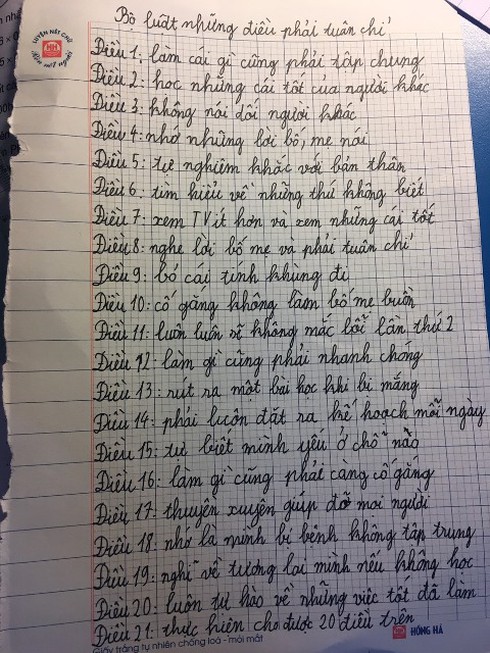 LUYỆN NÉT CHỮ
RÈN NẾT NGƯỜI
Bộ luật những điều phải tuân chỉ
Điều 1: làm cái gì cũng phải tập chung
Điều 2: học những cái tốt của người khác
Điều 3: không nói dối người khác
Điều 4: nhớ những lời bố, mẹ nói
Điều 5: tự nghiêm khắc với bản thân
Điều 6: tìm hiểu về những thứ không biết
Điều 7: xem TV ít hơn và xem những cái tốt
Điều 8: nghe lời bố mẹ va phải tuân chỉ
Điều 9: bỏ cái tính khùng đi
Điều 10: cố gắng không làm bố mẹ buồn
Điều 11: luôn luôn sẽ không mắc lỗi lần thứ 2
Điều 12: làm gì cũng phải nhanh chóng
Điều 13: rút ra một bài học khi bị mắng
Điều 14: phải luôn đặt ra kế hoạch mỗi ngày
Điều 15: tự biết mình yếu ở chỗ nào
Điều 16: làm gì cũng phải càng cố gắng
Điều 17: thuyên xuyên giúp đỡ mọi người
Điều 18: nhớ là mình bị bệnh không tập trung
Điều 19: nghĩ về tương lai mình nếu không học
Điều 20: luôn tự hào về những việc tốt đã làm
Điều 21: thực hiện cho được 20 điều trên
Giấy trắng tự nhiên chống loá - mỏi mắt
HỒNG HÀ